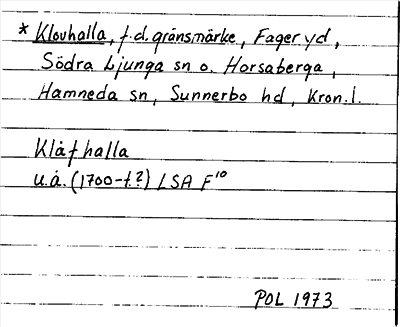 * Klovhalla, f.d. gränsmärke, Fageryd,
Södra Ljunga sn o. Horsaberga,
Hamneda sn, Sunnerbo hd, Kron.l.
Klåfhalla
u.å. (1700-t.?) LSA F¹⁰
POL 1973